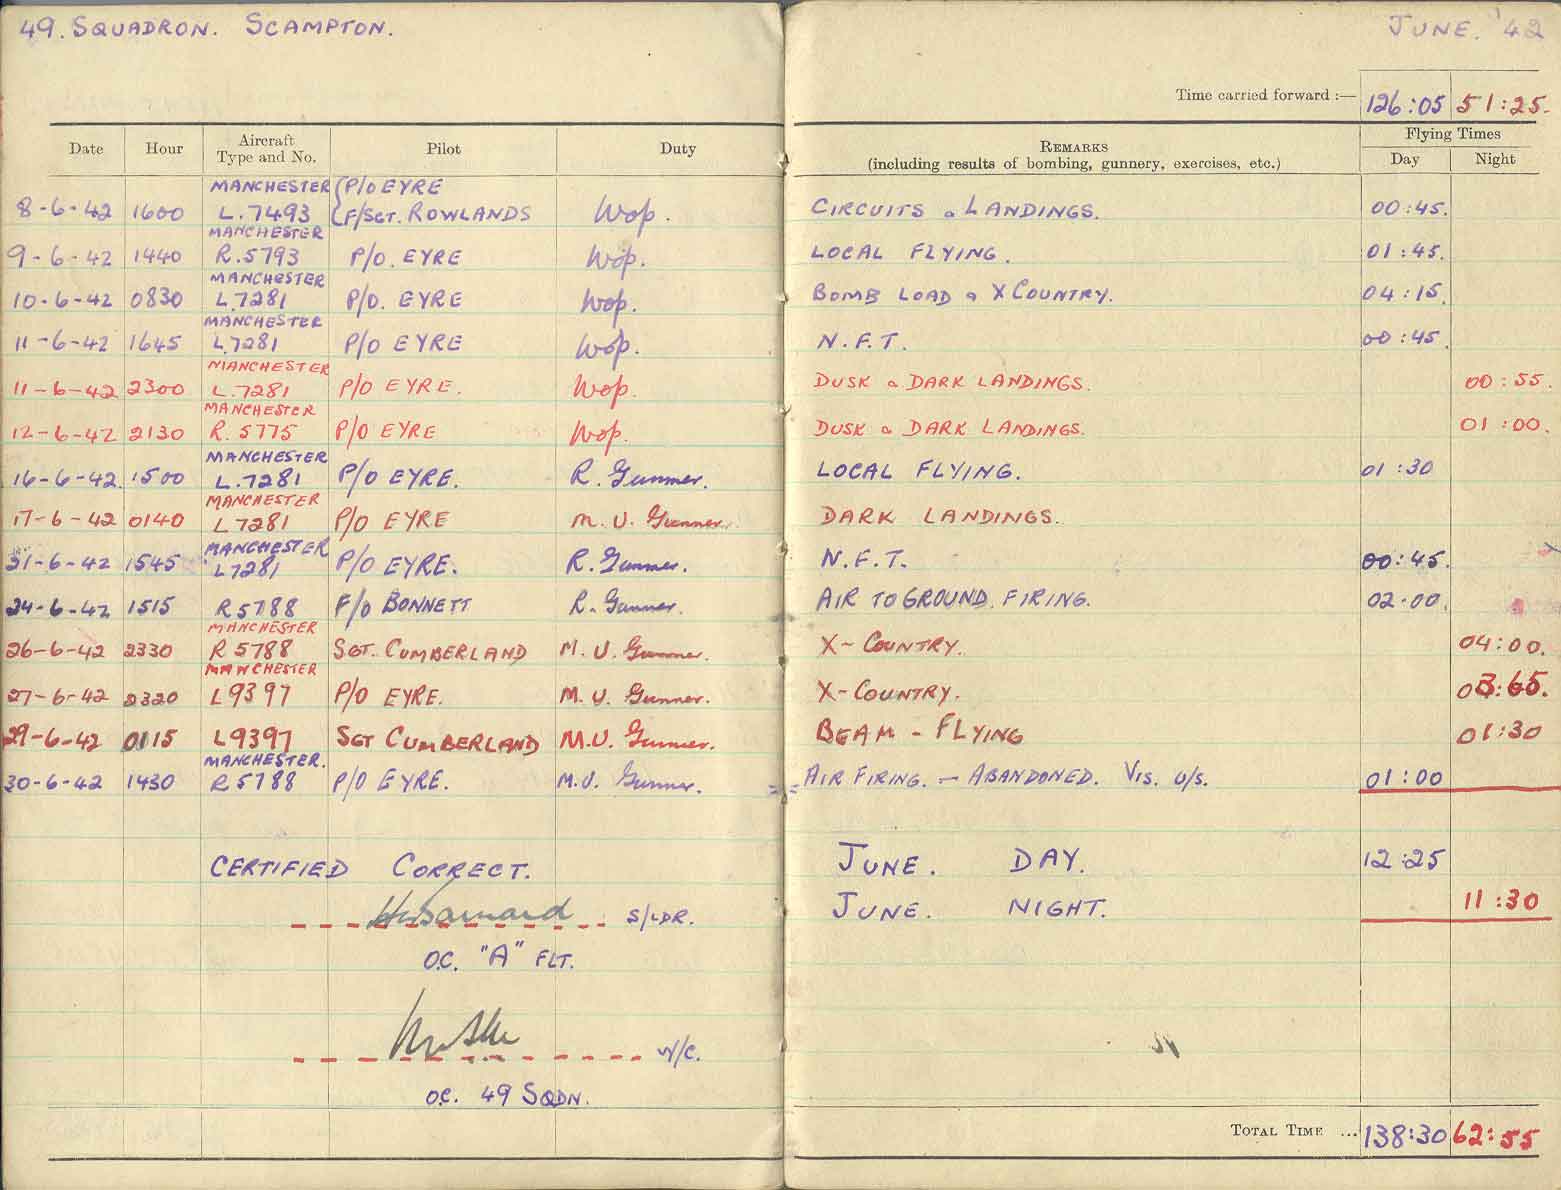 49. SQUADRON. SCAMPTON.
JUNE. '42
Time carried forward :— 126:05 51:25.
Date Hour Aircraft Type and No. Pilot Duty REMARKS (including results of bombing, gunnery, exercises, etc.) Flying Times Day Night
8-6-42 1600 MANCHESTER L.7493 P/O EYRE F/SGT. ROWLANDS Wop. CIRCUITS & LANDINGS. 00:45.
9-6-42 1440 MANCHESTER R.5793 P/O. EYRE Wop. LOCAL FLYING. 01:45.
10-6-42 0830 MANCHESTER L.7281 P/O. EYRE Wop. BOMB LOAD & X COUNTRY. 04:15.
11-6-42 1645 MANCHESTER L.7281 P/O EYRE Wop. N.F.T. 00:45.
11-6-42 2300 MANCHESTER L.7281 P/O EYRE. Wop. DUSK & DARK LANDINGS. 00:55.
12-6-42 2130 MANCHESTER R.5775 P/O EYRE Wop. DUSK & DARK LANDINGS. 01:00.
16-6-42. 1500 MANCHESTER L.7281 P/O EYRE. R. Gunner. LOCAL FLYING. 01:30
17-6-42 0140 MANCHESTER L7281 P/O EYRE M. U. Gunner. DARK LANDINGS.
21-6-42 1545 MANCHESTER L7281 P/O EYRE. R. Gunner. N.F.T. 00:45.
24-6-42 1515 R5788 F/O BONNETT R. Gunner. AIR TO GROUND FIRING. 02.00.
26-6-42 2330 MANCHESTER R5788 SGT. CUMBERLAND M. U. Gunner. X-COUNTRY. 04:00.
27-6-42 2320 MANCHESTER L9397 P/O EYRE. M. U. Gunner. X-COUNTRY.
29-6-42 0115 L9397 SGT CUMBERLAND M.U. Gunner. BEAM - FLYING 01:30
30-6-42 1430 MANCHESTER. R5788 P/O EYRE. M.U. Gunner. AIR FIRING. — ABANDONED. VIS. U/S. 01:00
CERTIFIED CORRECT. JUNE. DAY. 12:25
S/LDR. JUNE. NIGHT. 11:30
O.C. "A" FLT.
W/C.
O.C. 49 SQDN.
TOTAL TIME ... 138:30 62:55